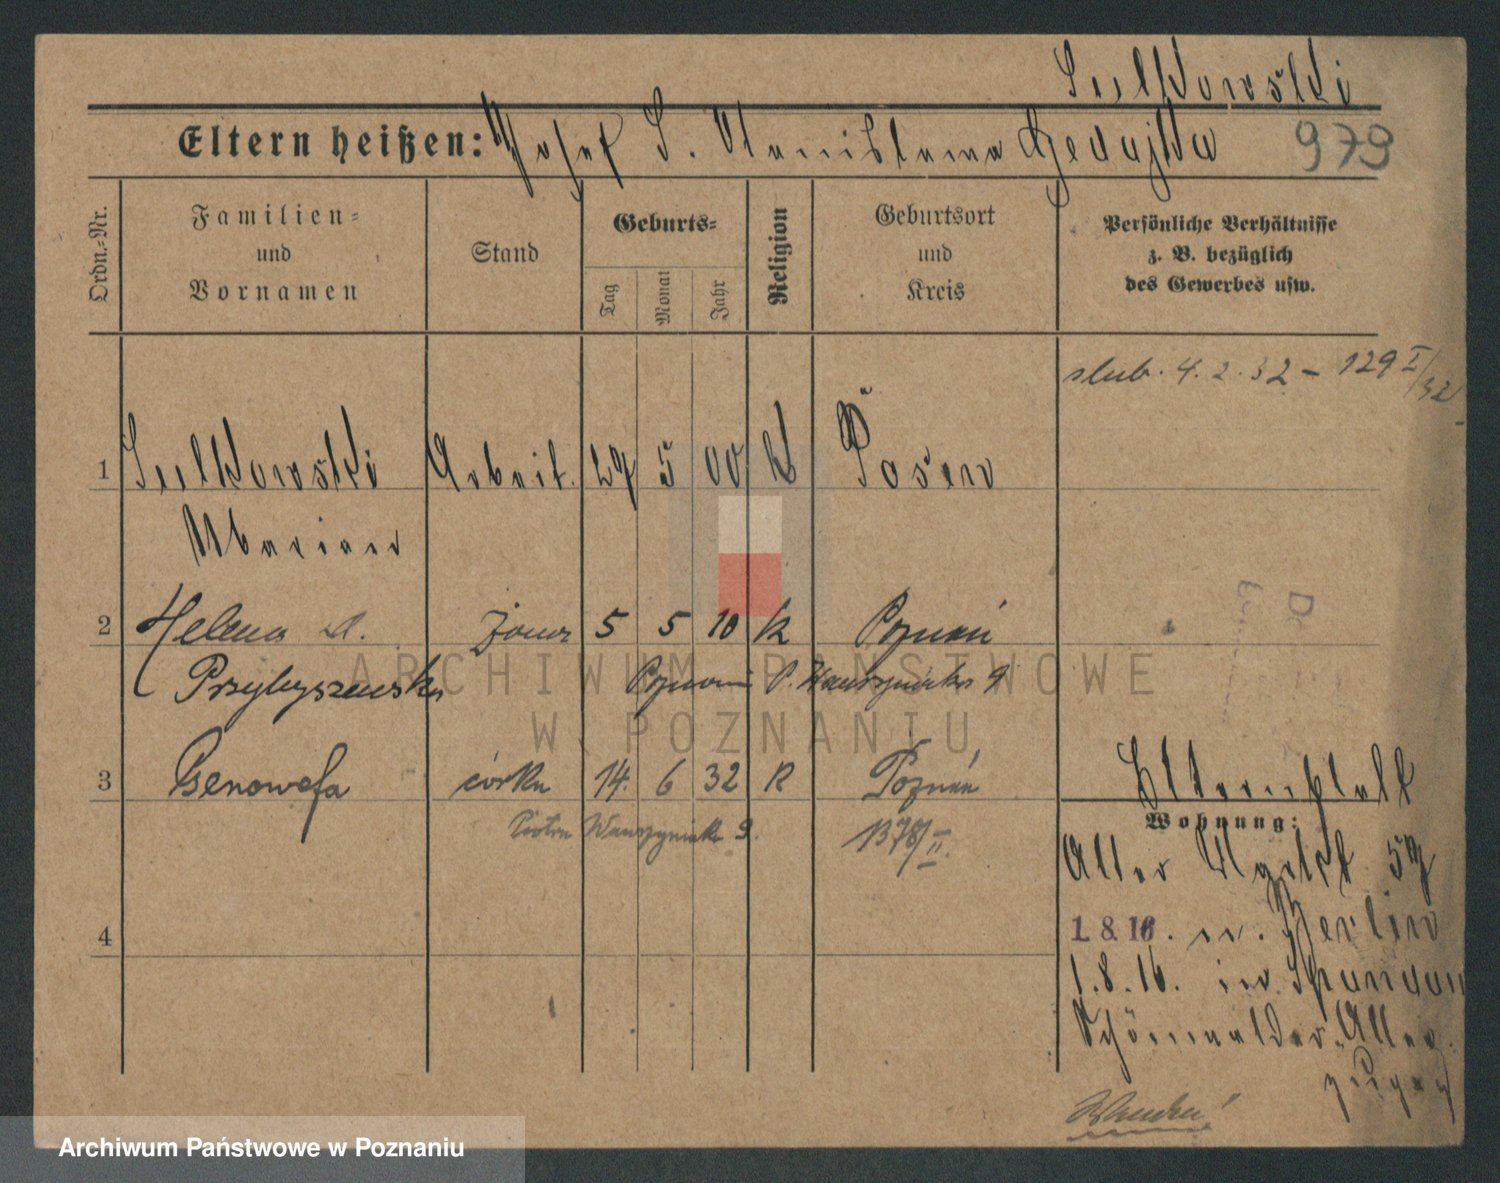 Sulkowski
Eltern heißen: Josef S. Stanislawa 979
Ordn.-Nr.
Familien-
und
Vornamen
Stand
Geburts-
Tag
Monat
Jahr
Religion
Geburtsort
und
Kreis
Persönliche Verhältnisse
z. B. bezüglich
des Gewerbes usw.
slub. 4. 2. 32 - 129 I/32
1 Sulkowski Arbeit. 27 5 00 k Posen
Marian
2 Helena d. żona 5 5 10 k Poznań
Przybyszewska Poznań P. Wawrzyniaka 9
3 Genowefa córka 14. 6 32 k Poznań
Piotra Wawrzyniaka 9. 1378/II.
Elternhlatt
Wohnung:
Alter Markt 57
4
1.8.16. n. Berlin
1.8.16. in Spandau
Schönwalder Allee
zugez
ARCHIWUM PAŃSTWOWE
W POZNANIU
Archiwum Państwowe w Poznaniu